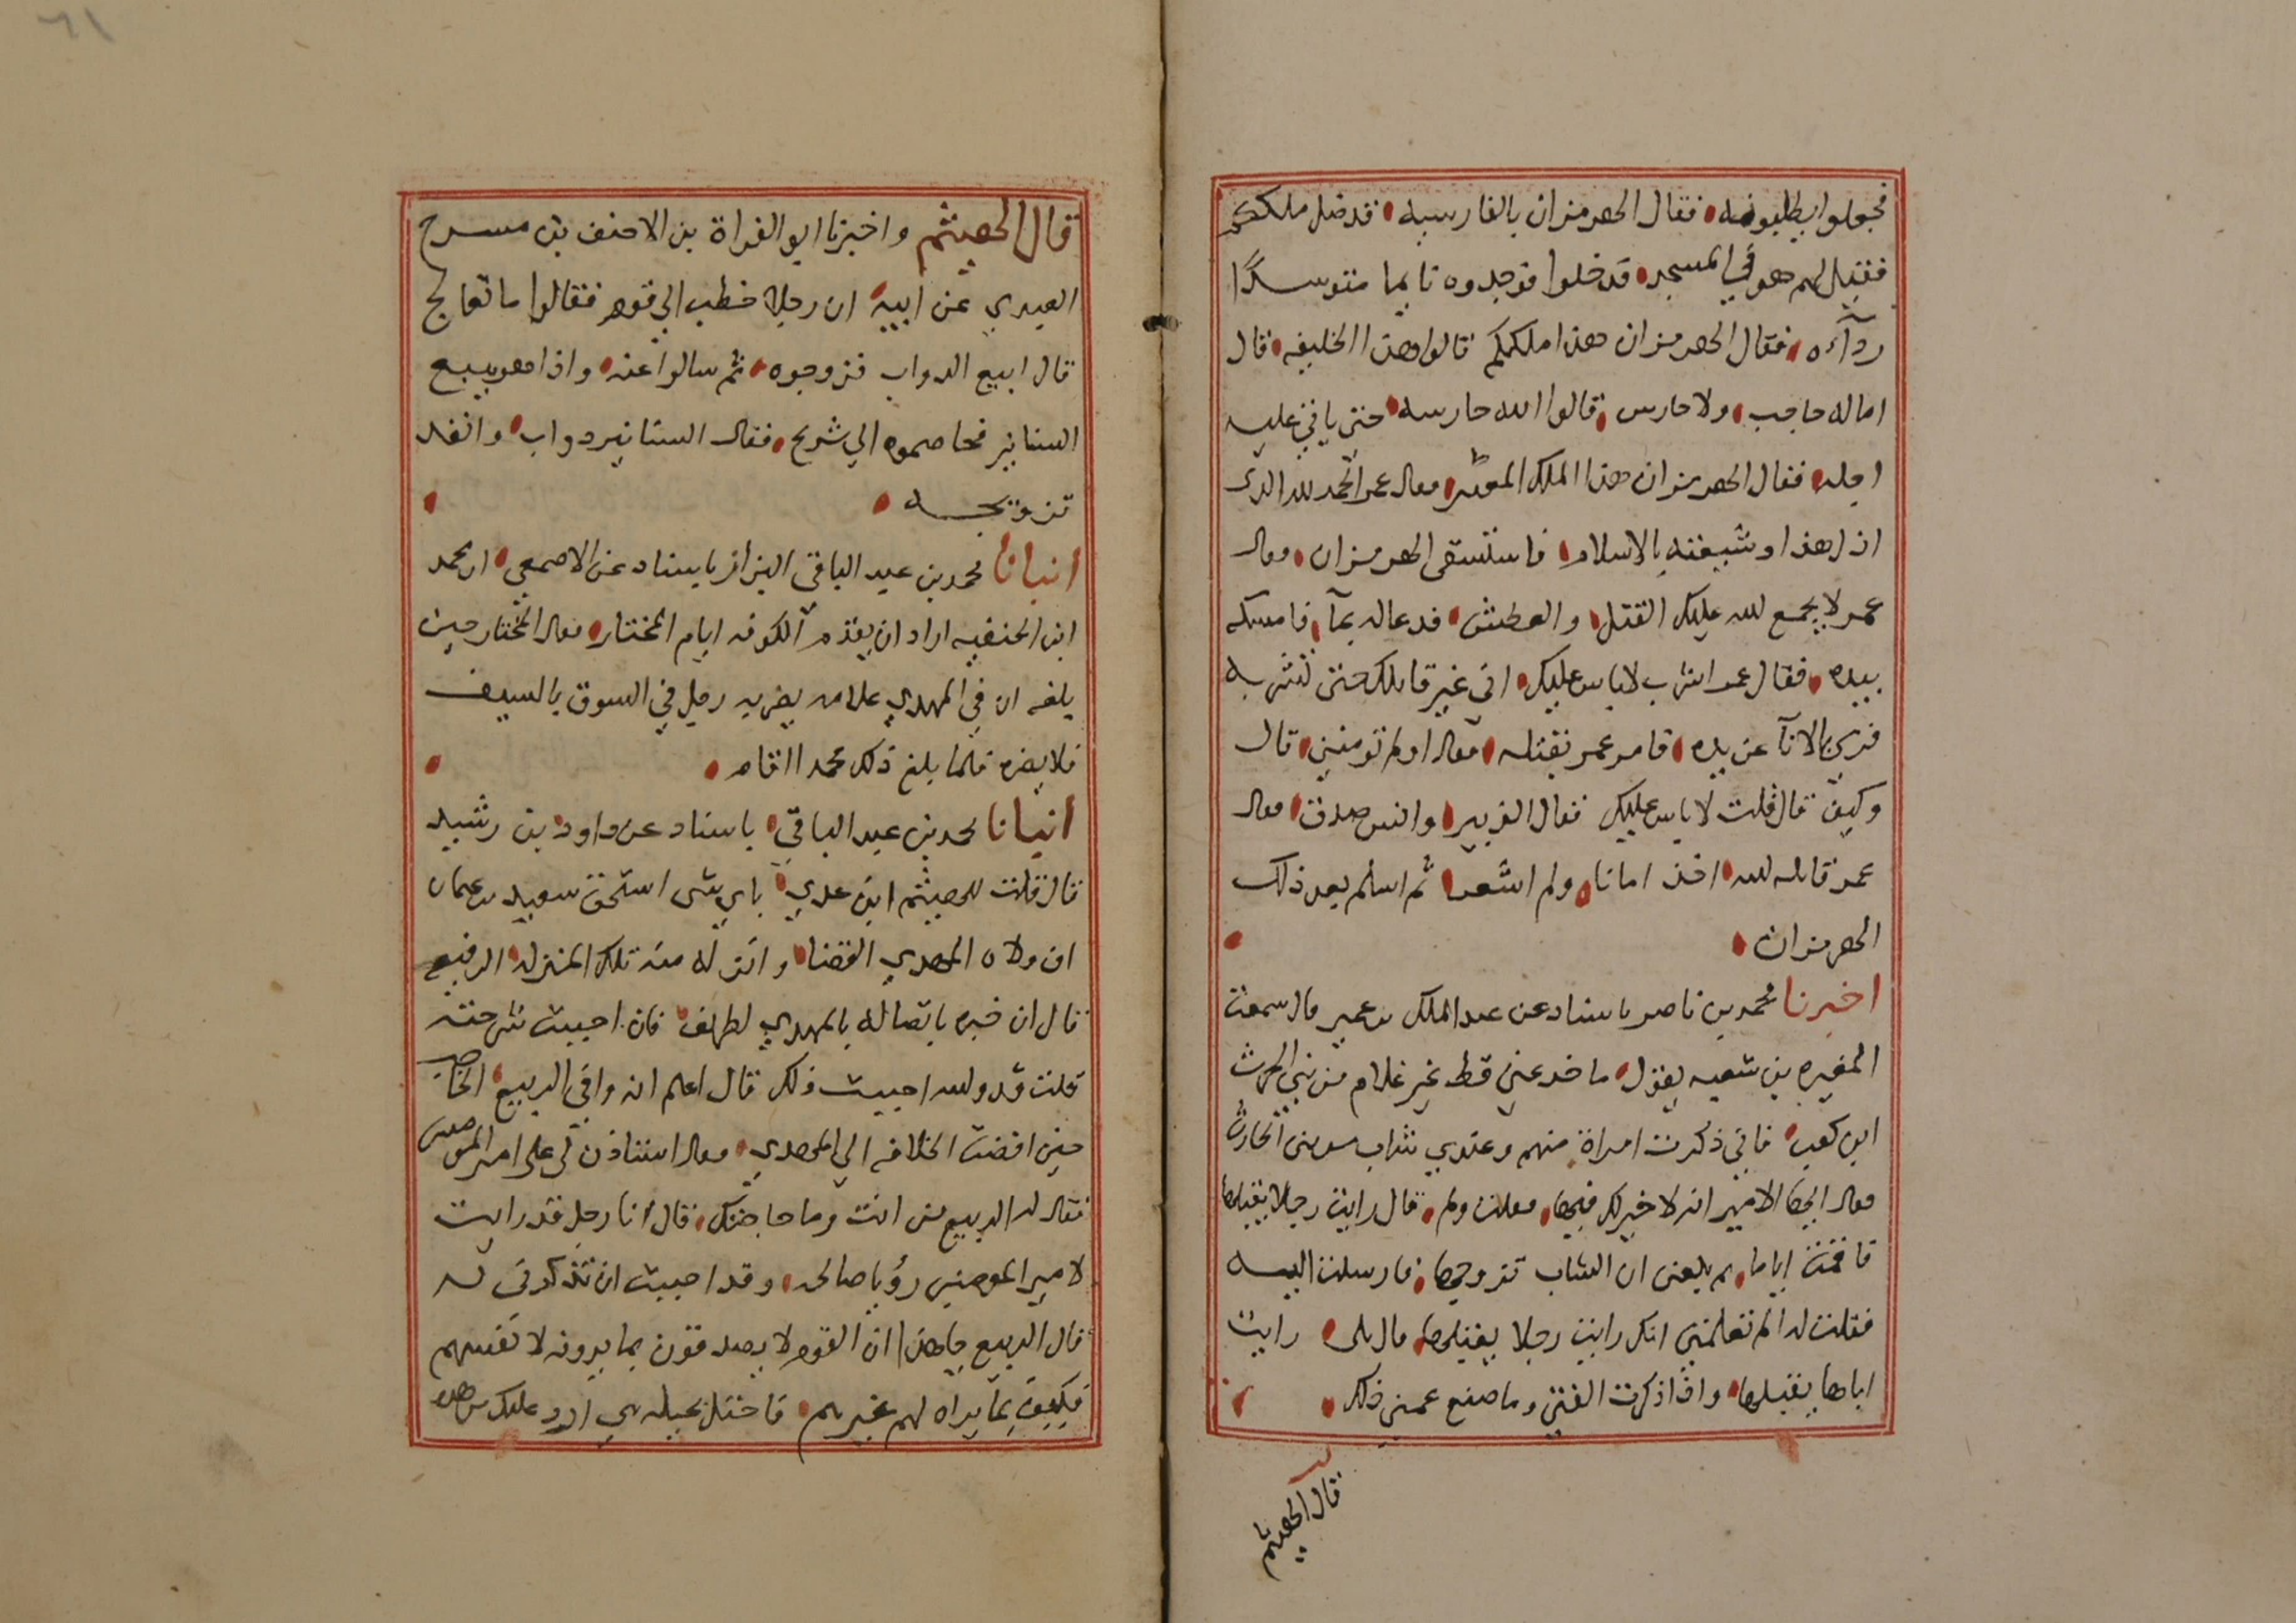 فجعلوا يطلبونه فقال الهرمزان بالفارسيه قد ضل ملككم
فقيل لهم هو في المسجد فدخلوا فوجدوه نايما متوسدًا
ردآءه فقال الهرمزان هذا ملككم قالوا هذا الخليفه قال
اما له حاجب ولا حارس قالوا الله حارسه حتي ياتي عليه
اجله فقال الهرمزان هذا الملك المهنّى فقال عمر الحمد لله الدى
اذل هذا وشيعته بالاسلام فاستسقى الهرمزان فقال
عمر لا يجمع لله عليك القتل والعطش فدعا له بمآ فامسكه
بيده فقال عمر اشرب لا باس عليك اني غير قاتلك حتى تشربه
فرمي بالانآ عن يده فامر عمر بقتله فقال اولم تومنني قال
وكيف قال قلت لا باس عليك فقال الزبير وانس صدق فقال
عمر قاتله لله اخذ امانا ولم اشعر ثم اسلم بعد ذلك
الهرمزان
اخبرنا محمد بن ناصر باسناد عن عبد الملك بن عمير قال سمعت
المغيره بن شعبه يقول ما خدعني قط غير غلام من بني الحرث
ابن كعب فاني ذكرت امراة منهم وعندي شاب من بني الحارث
فقال ايها الامير انه لا خير لك فيها فقلت ولم قال رايت رجلا يقبلها
فاقمت اياما ثم بلغني ان الشاب تزوجها فارسلت اليه
فقلت له الم تعلمني انك رايت رجلا يقبلها قال بلى رايت
اباها يقبلها واذا ذكرت الفتي وما صنع غمني ذلك
قال الهيثم
٦١
قال الهيثم واخبرنا ابو الفراة بن الاحنف بن مسرح
العبدي عن ابيه ان رجلا خطب الي قوم فقالوا ما تعالج
قال ابيع الدواب فزوجوه ثم سالوا عنه واذا هو يبيع
السنانير فخاصموه الي شريح فقال السنانير دواب وانفد
تزويجه
انبانا محمد بن عبد الباقي البزاز باسناد عن الاصمعي ان محمد
ابن الحنفيه اراد ان يقدم الكوفه ايام المختار فقال المختار حين
بلغه ان في المهدي علامه يضربه رجل في السوق بالسيف
فلا يضره فلما بلغ ذلك محمد اقام
انبانا محمد بن عبد الباقي باسناد عن داود بن رشيد
قال قلت للهيثم ابن عدي باي شى استحق سعيد بن عثمان
ان ولاه المهدي القضا وانزله منه تلك المنزله الرفيع
قال ان خبره باتصاله بالمهدي لطريف فان احببت شرحته
قلت قد ولله احببت ذلك قال اعلم انه وافي الربيع الحاجب
حين افضت الخلافه الي المهدي فقال استاذن لي على امير المومنين
فقال له الربيع من انت وما حاجتك قال أنا رجل قد رايت
لامير المومنين رؤيا صالحه وقد احببت ان تذكرني له
قال الربيع يا هذا ان القوم لا يصدقون بما يرونه لانفسهم
فكيف بما يراه لهم غيرهم فاحتل بحيله هي ارد عليك من هذه